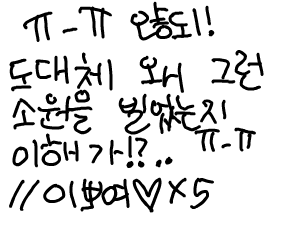 ㅠ-ㅠ 안돼!
도대체 왜 그런
소원을 빌었는지
이해가!?.. ㅠ-ㅠ
//이뽀여♡×5